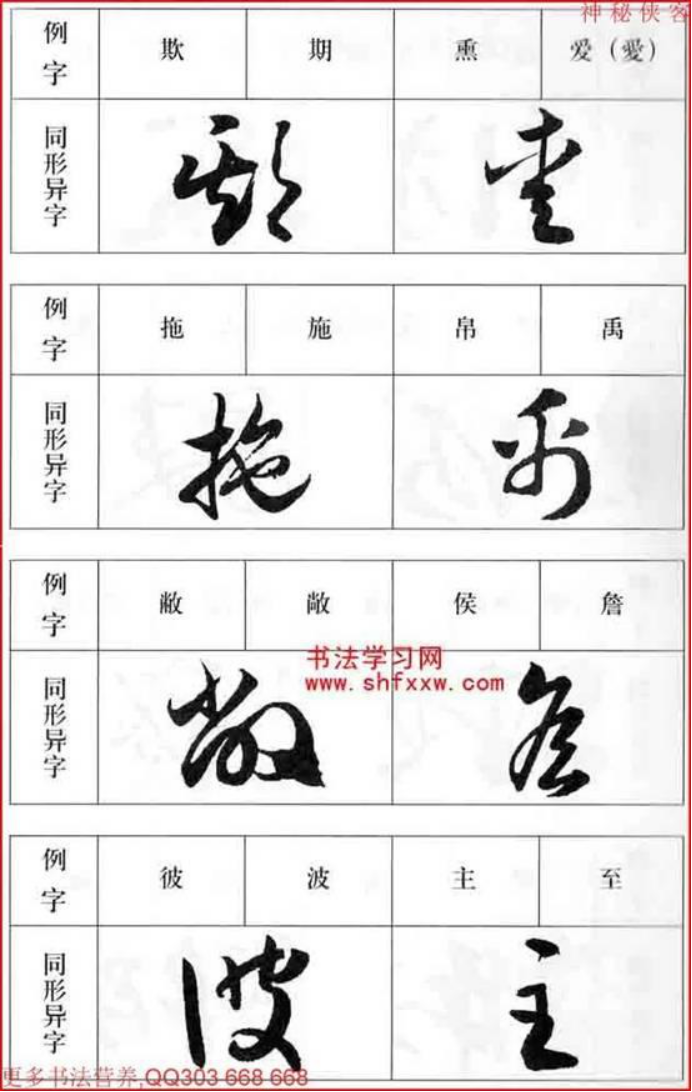 神秘侠客
例字 欺 期 熏 爱（愛）
同形异字
例字 拖 施 帛 禹
同形异字
例字 敝 敞 侯 詹
同形异字
书法学习网
www.shfxxw.com
例字 彼 波 主 至
同形异字
更多书法营养,QQ303 668 668